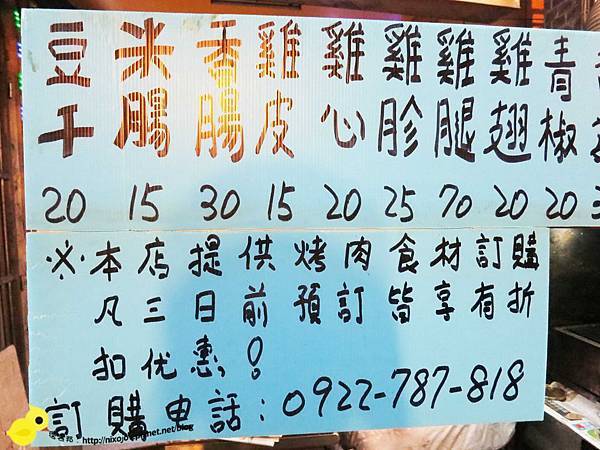 豆干 米腸 香腸 雞皮 雞心 雞胗 雞腿 雞翅 青椒
20 15 30 15 20 25 70 20 20
※本店提供烤肉食材訂購
凡三日前預訂皆享有折
扣优惠!
訂購电話:0922-787-818